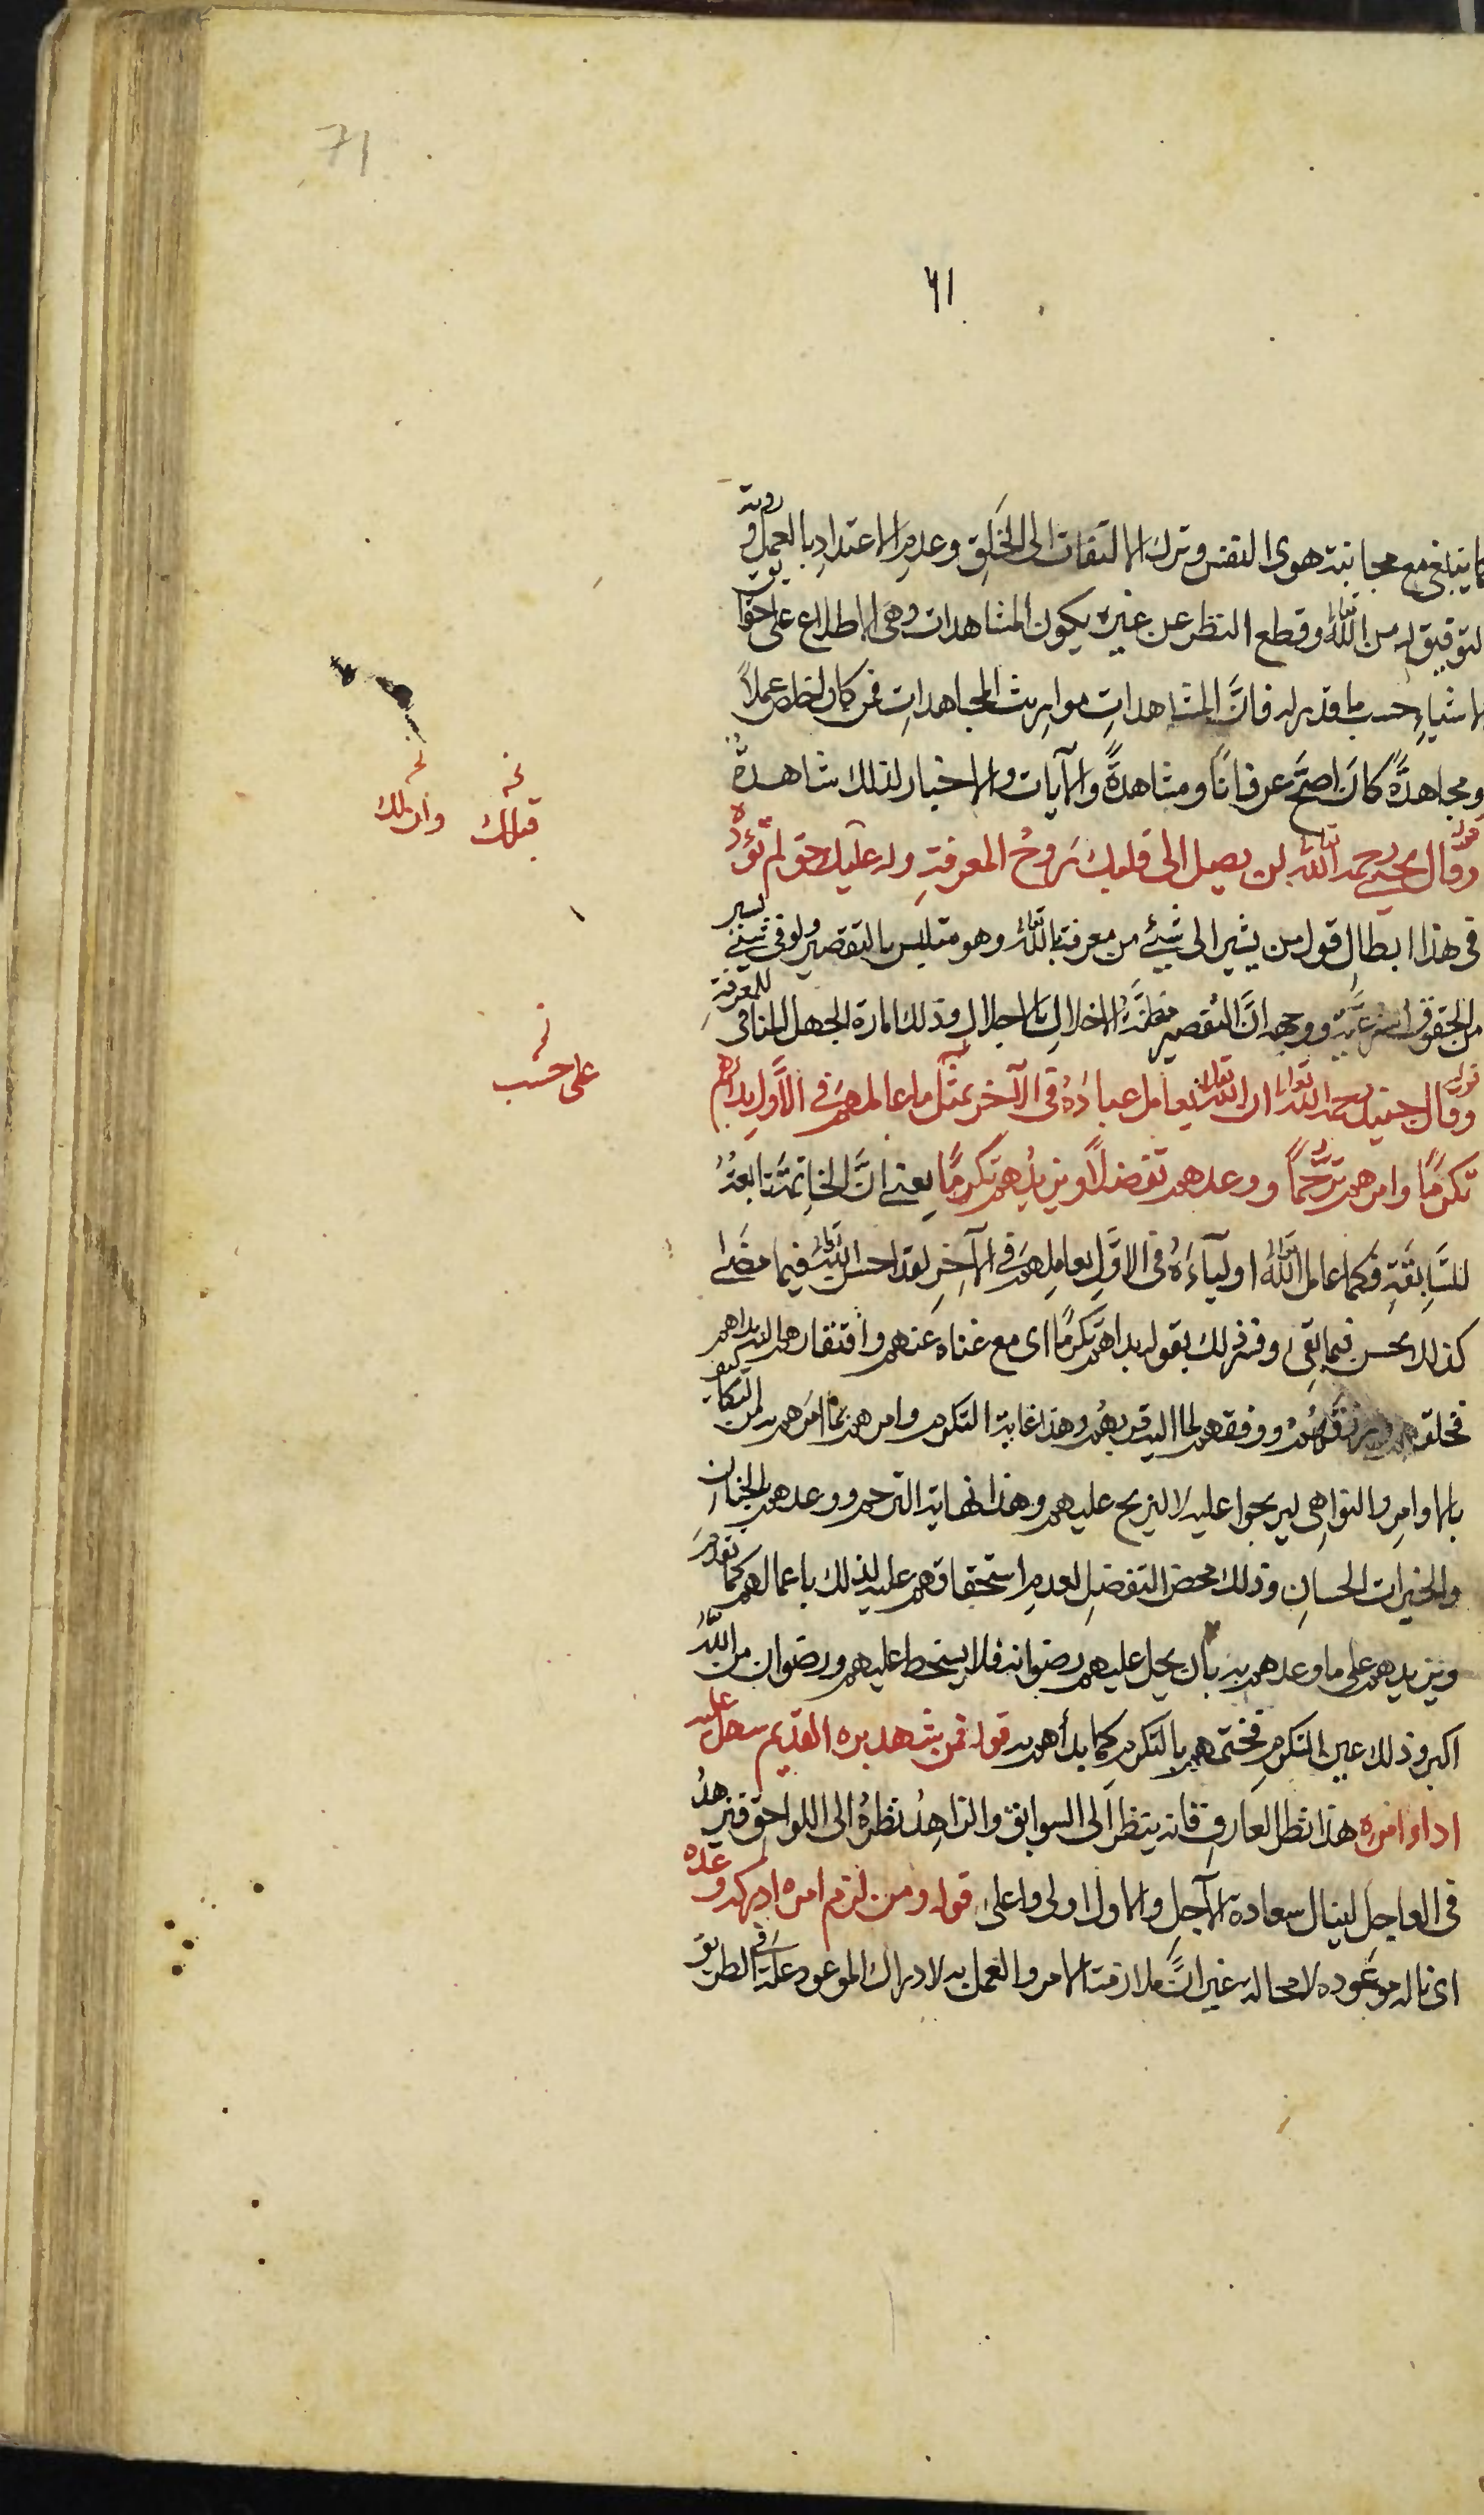 71
٧١
كما ينبغى مع مجانبة هوى النفس وترك الالتفات الى الخلق وعدم الاعتداد بالعمل ورؤية
التوفيق له من الله تعالى وقطع النظر عن غيره يكون المشاهدات وهى الاطلاع على حقايق
الاشياء حسب ما قدر له فانَّ المشاهداتِ مواريث المجاهداتِ فمن كان اخلص عملاً
ومجاهدةً كانَ اصحَّ عرفاناً ومشاهدةً والآيات والاخبار لذلك شاهدةٌ
قوله وقال يحيى رحمه الله تعالى لن يصل الى قلبك رَوحُ المعرفةِ وله عليك حق لم تؤدّه
فى هذا ابطالِ قول من يشير الى شئ من معرفة الله تعالى وهو متلبس بالتقصير ولو فى شئ يسير
من الحقوق الشرعيَّة ووجهه انَّ التقصير مظنَّة الاخلال بالاجلال وذلك امارة الجهل المنافى للمعرفةِ
قوله وقال جنيد رحمه الله تعالى ان الله تعالى يعامل عبادَهُ فى الآخر بمثل ما عاملهم فى الاَوّلِ بدأهم
تكرّماً وامرهم ترحُّماً ووعدهم تفضلاً ويزيدُهم تكرماً يعنى انَّ الخاتمة تابعةُ
للسَّابقةِ فكما عامل الله تعالى اولياءَهُ فى الاوَّلِ يعاملهم فى الآخرِ لقد احسن الله تعالى فيما مضى
كذلك يحسن فيما بقى وفسّر ذلك بقوله بدأهم تكرماً اى مع غناه عنهم وافتقارهم اليه بدأهم
فخلقهم ورزقهُم ووفقهم لما اليه قربهُم وهذا غاية التكرم وامرهم بما امرهم به من التكاليف
بالاوامرِ والنواهِى ليربحوا عليه لا ليربح عليهم وهذا نهاية الترحم ووعدهم بالجنان
والخيرات الحسانِ وذلك محض التفضلِ لعدم استحقاقهم عليه لذلك باعمالهم كما تقدمَ
ويزيدهم على ما وعدهم به بأن يحل عليهم رضوانه فلا يسخط عليهم ورضوان من اللهُ
اكبر وذلك عين التكرمِ فختم هم بالتكرمِ كما بدأهم به قوله فمن شهد بره القديم سهل عليه
اداء امره هذا نظر العارفِ فانه ينظر الى السوابق والزاهِدُ نظرهُ الى اللواحق فيزهدُ
فى العاجل لينال سعادة الآجلِ والاول اولى واعلى قوله ومن لزم امره ادرك وعده
اى ناله موعوده لا محالة غير انَّ ملازمة الامر والعمل به لادراك الموعود علة فى الطريق
نخـ
وان تلك
نخـ
قبلك
نخـ
على حسب